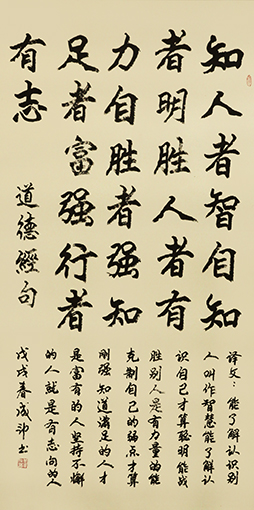 知人者智自知
者明胜人者有
力自胜者强知
足者富强行者
有志
道德經句
译文：能了解认识别
人叫作智慧能了解认
识自己才算聪明能战
胜别人是有力量的能
克制自己的弱点才算
刚强知道满足的人才
是富有的人坚持不懈
的人就是有志向的人
戊戌春成书